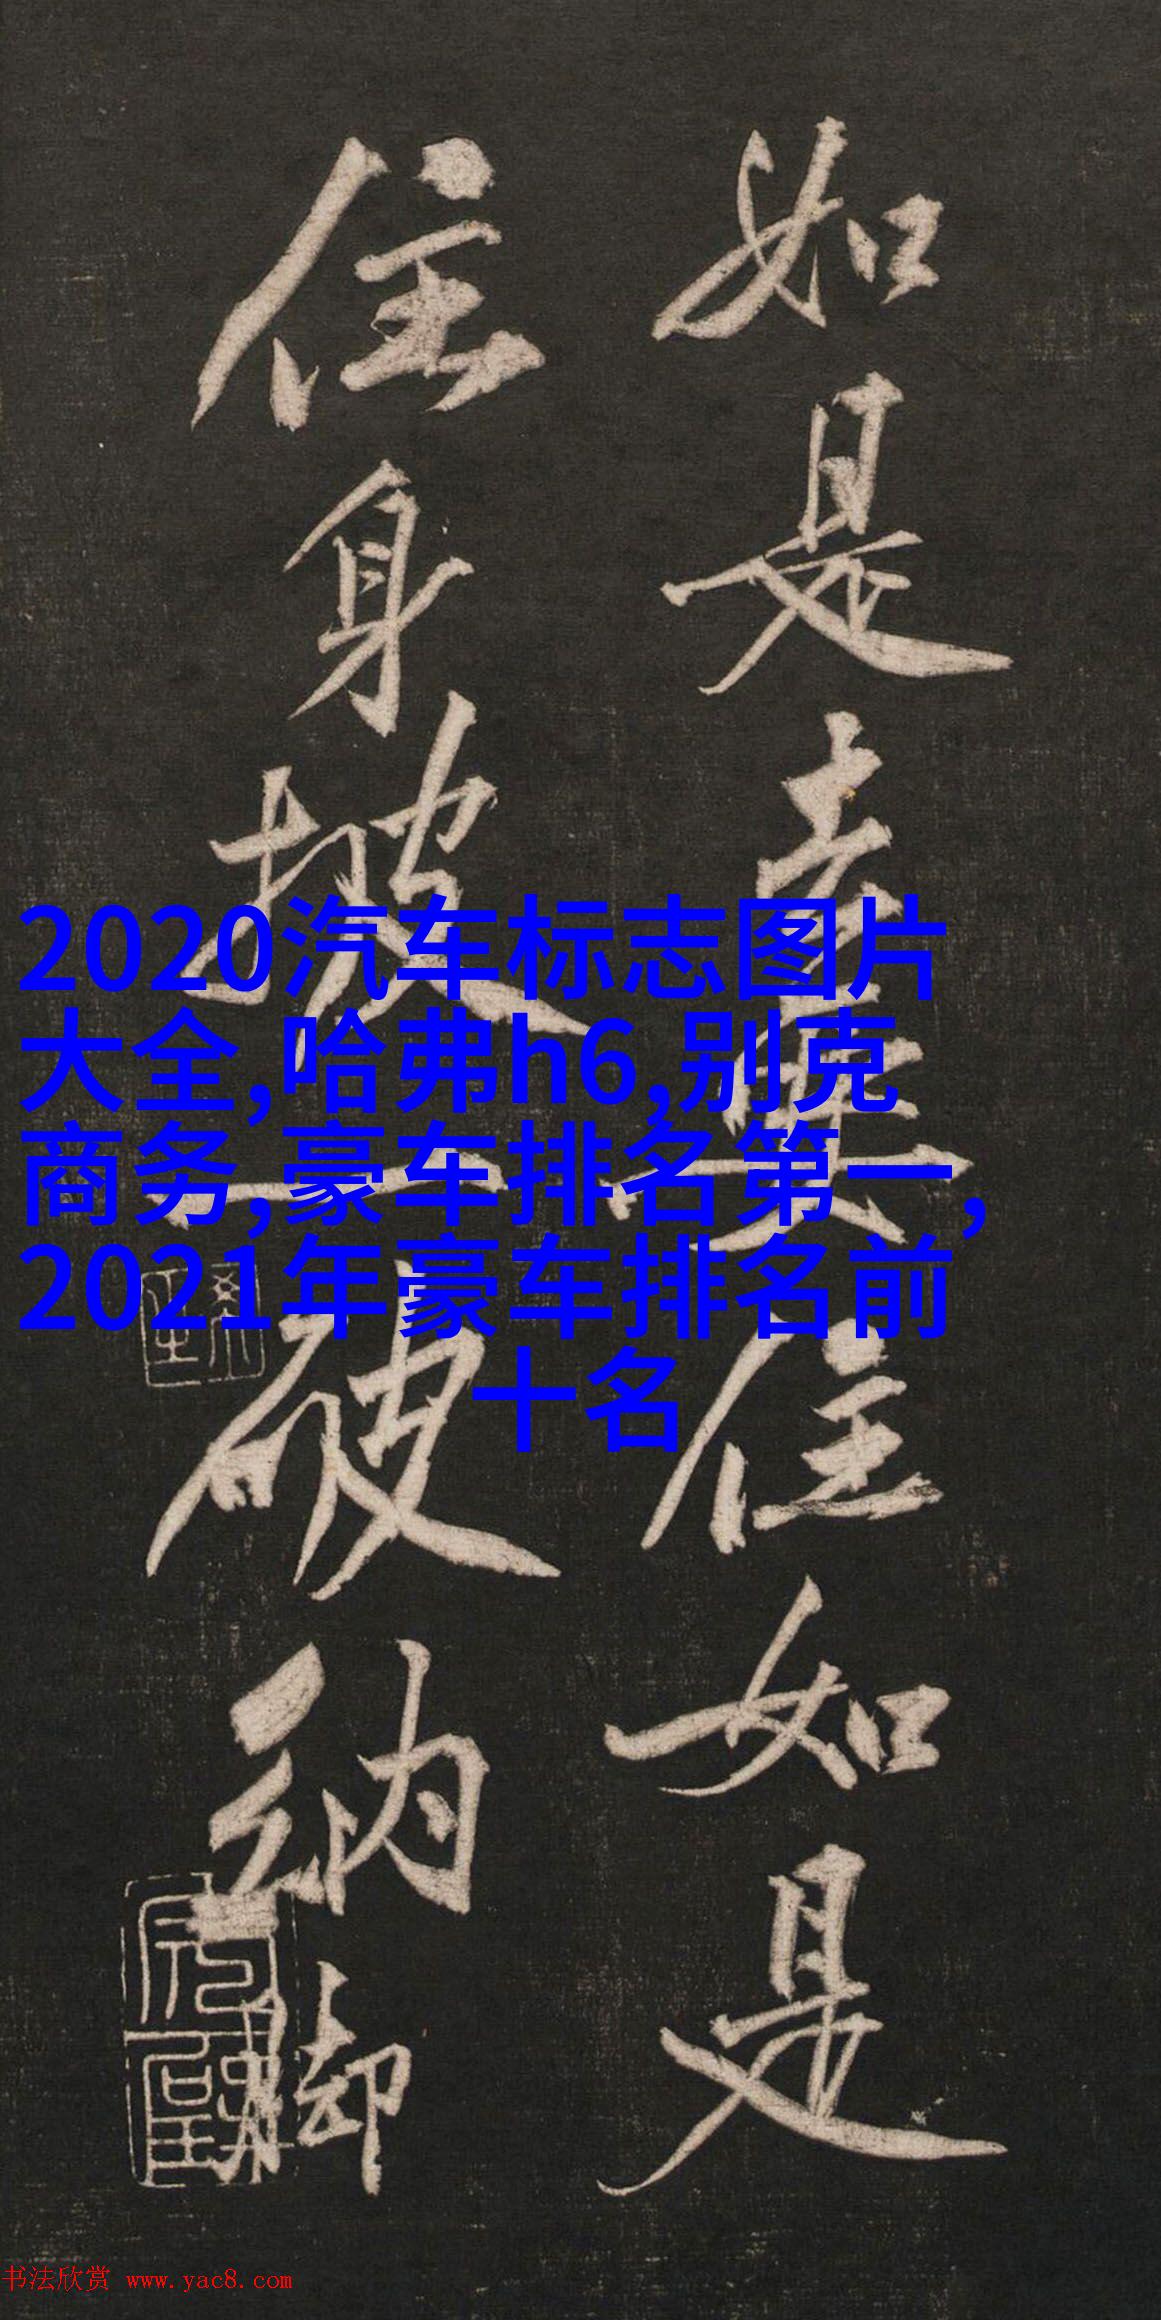 如是去實住如是
住身披一破納脚
2020汽车标志图片
大全,哈弗h6,别克
商务,豪车排名第一,
2021年豪车排名前
十名
书法欣赏 www.yac8.com